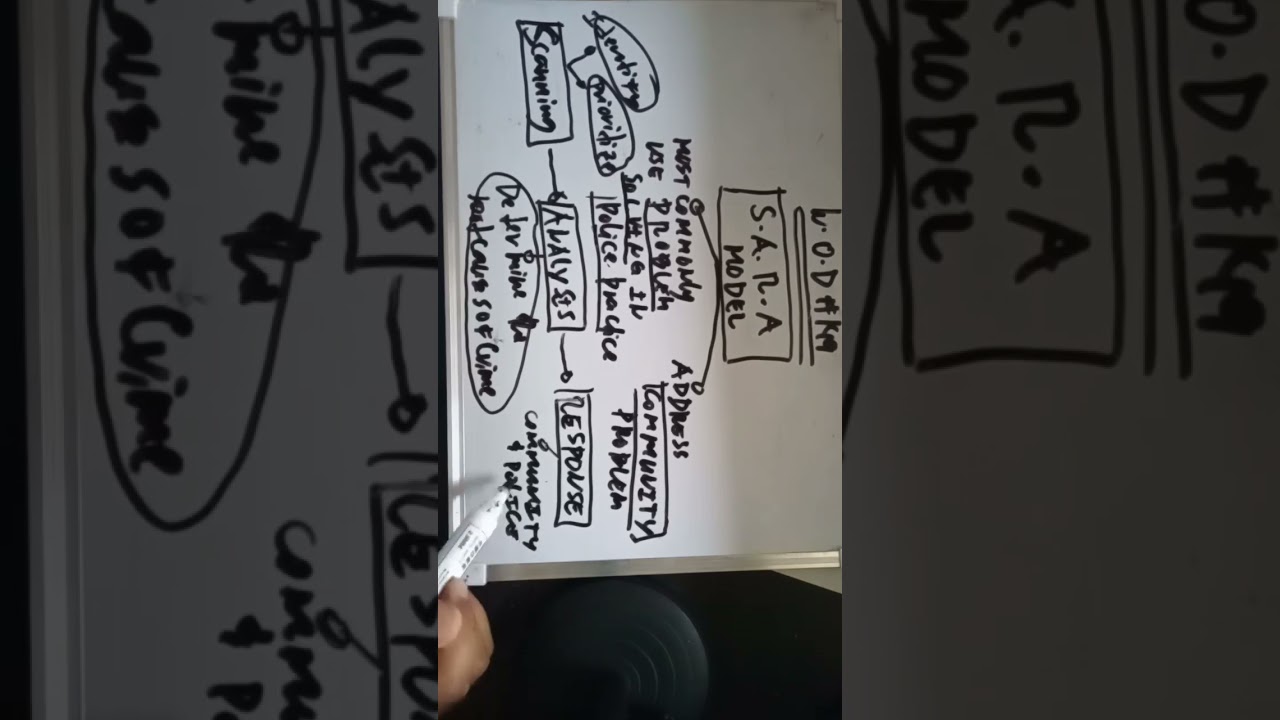 W.O.D #K49
S.A.R.A
MODEL
MUST COMMONLY
USE PROBLEM
SOLVING IN
Police practice
ADDRESS
COMMUNITY
PROBLEM
identify
prioritize
Scanning
ANALYSIS
RESPONSE
Determine the
root causes of crime
COMMUNITY
& POLICE